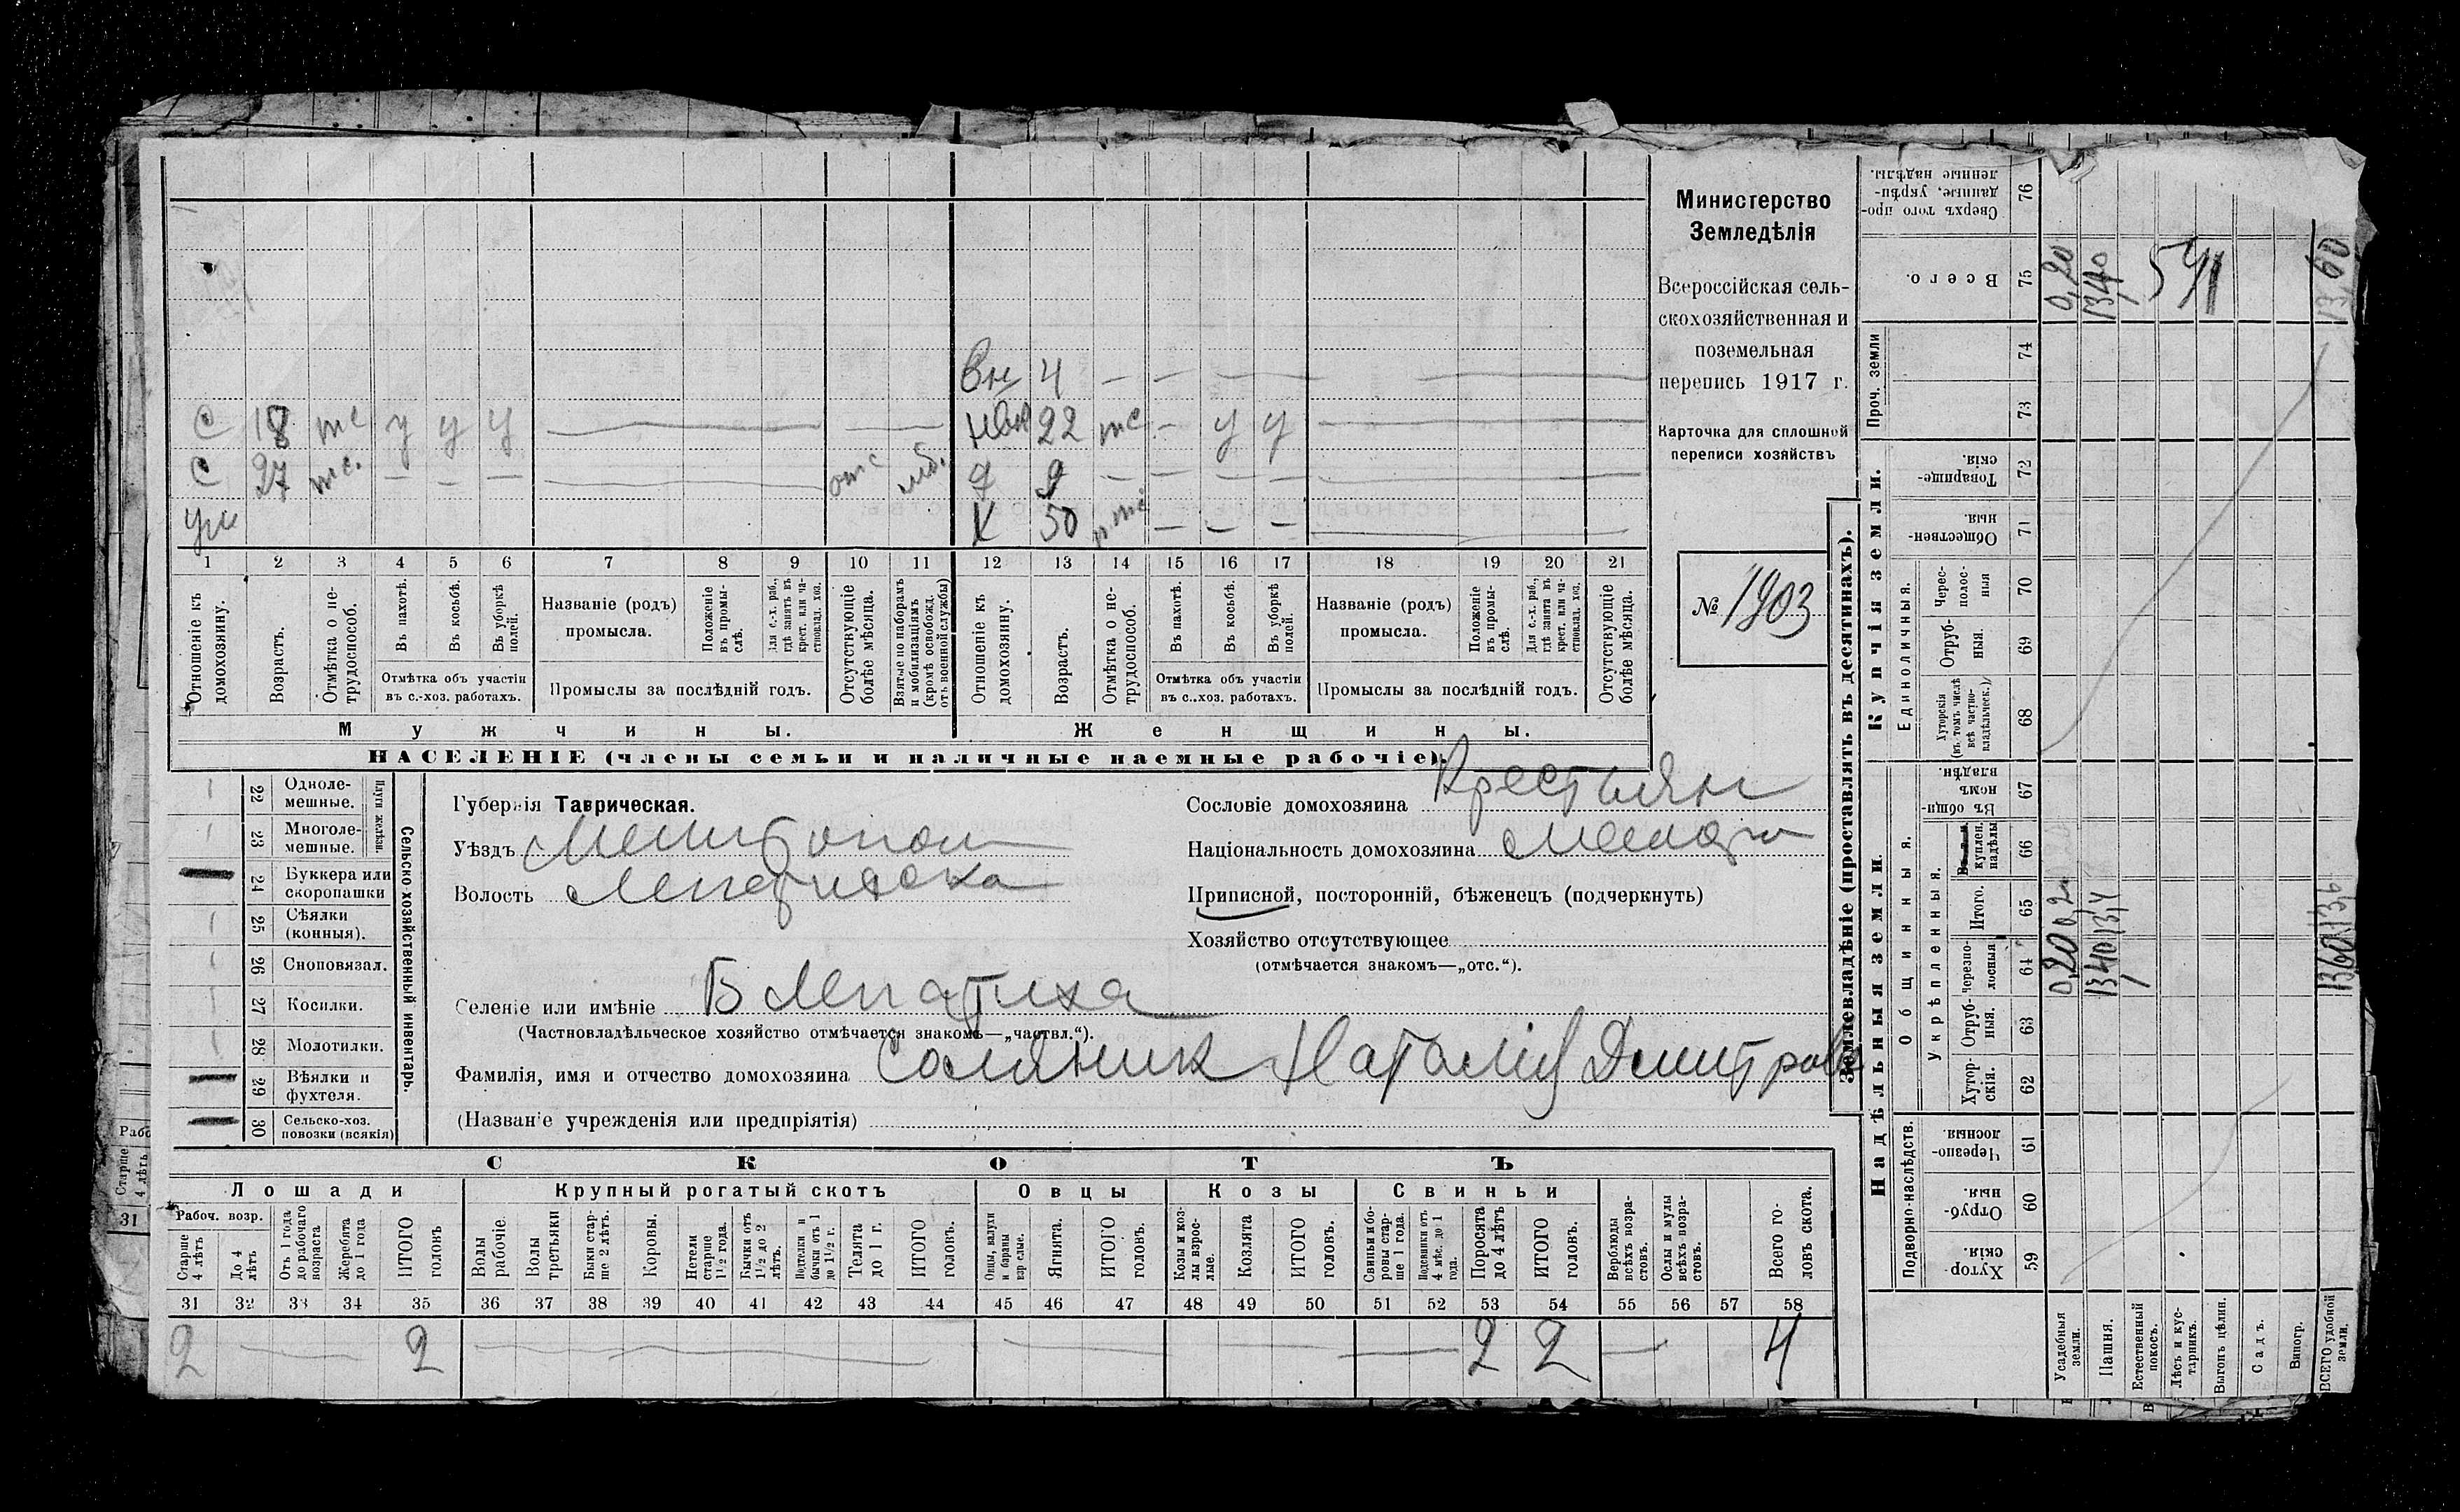 Министерство
Земледѣлія
Всероссійская сель-
скохозяйственная и
поземельная
перепись 1917 г.
Карточка для сплошной
переписи хозяйствъ
№ 1903
вн 4 — — — —
с 18 тс у у у — — нев 22 тс - у у —
с 27 тс. — — — — отс мб. д 9 — — — —
ум К 50 птс — — — —
1 2 3 4 5 6 7 8 9 10 11 12 13 14 15 16 17 18 19 20 21
Отношеніе къ домохозяину.
Возрастъ.
Отмѣтка о не-трудоспособ.
Въ пахотѣ.
Въ косьбѣ.
Въ уборкѣ полей.
Отмѣтка объ участіи
въ с.-хоз. работахъ.
Названіе (родъ)
промысла.
Положеніе въ промы-слѣ.
Для с.-х. раб., гдѣ занятъ въ крест. или ча-стновлад. хоз.
Промыслы за послѣдній годъ.
Отсутствующіе болѣе мѣсяца.
Взятые по наборамъ и мобилизаціямъ (кромѣ освобожд. отъ военной службы)
Отношеніе къ домохозяину.
Возрастъ.
Отмѣтка о не-трудоспособ.
Въ пахотѣ.
Въ косьбѣ.
Въ уборкѣ полей.
Отмѣтка объ участіи
въ с.-хоз. работахъ.
Названіе (родъ)
промысла.
Положеніе въ промы-слѣ.
Для с.-х. раб., гдѣ занята въ крест. или ча-стновлад. хоз.
Промыслы за послѣдній годъ.
Отсутствующіе болѣе мѣсяца.
Мужчины. Женщины.
НАСЕЛЕНІЕ (члены семьи и наличные наемные рабочіе).
Сельско-хозяйственный инвентарь.
Плуги желѣзн.
22 Одноле-мешные.
23 Многоле-мешные.
24 Буккера или скоропашки
25 Сѣялки (конныя).
26 Сноповязал.
27 Косилки.
28 Молотилки.
29 Вѣялки и фухтеля.
30 Сельско-хоз. повозки (всякія)
Губернія Таврическая.
Уѣздъ Мелитопол
Волость Лепатихска
Селеніе или имѣніе Б Лепатиха
(Частновладѣльческое хозяйство отмѣчается знакомъ—„частвл.“).
Фамилія, имя и отчество домохозяина Соляник Наталия Дмитров
(Названіе учрежденія или предпріятія)
Сословіе домохозяина Крестьян
Національность домохозяина Малор
Приписной, посторонній, бѣженецъ (подчеркнуть)
Хозяйство отсутствующее
(отмѣчается знакомъ—„отс.“).
СКОТЪ
Лошади Крупный рогатый скотъ Овцы Козы Свиньи
Рабоч. возр.
Старше 4 лѣтъ
До 4 лѣтъ
Отъ 1 года до рабочаго возраста
Жеребята до 1 года
ИТОГО головъ
Волы рабочіе.
Волы третьяки
Быки стар-ше 2 лѣтъ.
Коровы.
Нетели старше 1½ года.
Бычки отъ 1½ до 2 лѣтъ.
Подтелки и бычки отъ 1 до 1½ г.
Телята до 1 г.
ИТОГО головъ.
Овцы, валухи и бараны взрослые.
Ягнята.
ИТОГО головъ.
Козы и коз-лы взрос-лые.
Козлята
ИТОГО головъ.
Свиньи и бо-ровы стар-ше 1 года.
Подсвинки отъ 4 мѣс. до 1 года.
Поросята до 4 лѣтъ
ИТОГО головъ.
Верблюды всѣхъ возра-стовъ.
Ослы и мулы всѣхъ возра-стовъ.
Всего го-ловъ скота.
31 32 33 34 35 36 37 38 39 40 41 42 43 44 45 46 47 48 49 50 51 52 53 54 55 56 57 58
2 — 2 — — — — 2 2 — 4
Землевладѣніе (проставлять въ десятинахъ).
Сверхъ того про-данные, укрѣп-ленные надѣлы. 76
Всего. 75 0,20 13,40 541 13,60
Проч. земли 74
73
Купчія земли.
Товарище-скія. 72
Обществен-ныя. 71
Единоличныя.
Черес-полос-ныя 70
Отруб-ныя. 69
Хуторскія (въ томъ числѣ всѣ частно-владѣльческ.) 68
Надѣльныя земли.
Общинныя.
Въ общин-номъ владѣн. 67
куплен. надѣлы 66
Укрѣпленныя.
Итого. 65 0,2 13,4 13,6
Черезпо-лосныя 64 0,20 13,40 13,60
Отруб-ныя. 63
Хутор-скія. 62
Подворно-наслѣдств.
Черезпо-лосныя. 61
Отруб-ныя. 60
Хутор-скія. 59
Усадебныя земли.
Пашня.
Естественный покосъ.
Лѣсъ и кус-тарникъ.
Выгонъ цѣлин.
Садъ.
Виногр.
ВСЕГО удобной земли.
Старше 4 лѣтъ
31